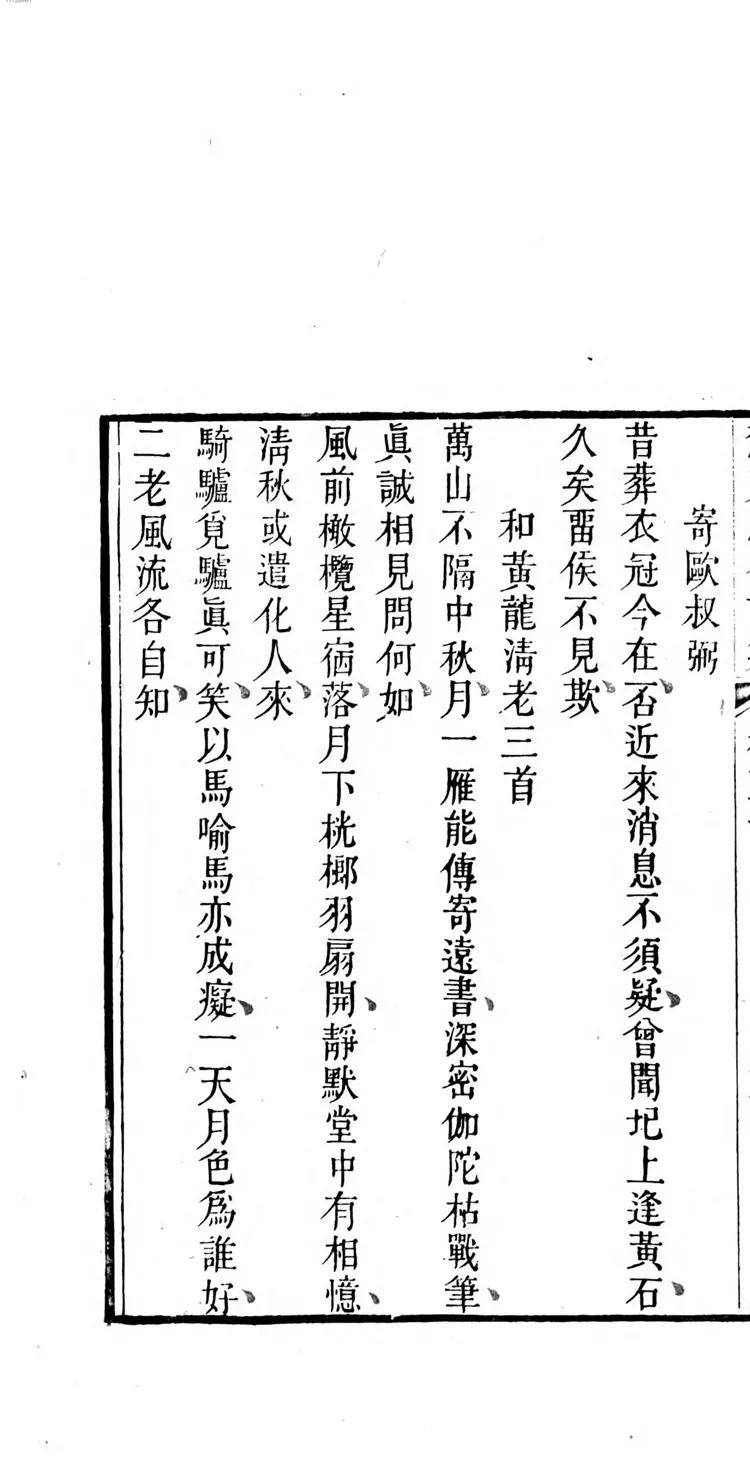 寄歐叔弼
昔葬衣冠今在否、近來消息不須疑、曾聞圯上逢黃石、
久矣畱侯不見欺、
和黃龍淸老三首
萬山不隔中秋月、一雁能傳寄遠書、深密伽陀枯戰筆、
眞誠相見問何如、
風前橄欖星宿落、月下桄榔羽扇開、靜默堂中有相憶、
淸秋或遣化人來、
騎驢覓驢眞可笑、以馬喻馬亦成癡、一天月色爲誰好、
二老風流各自知、